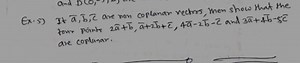 and D(0,
Ex.5) If a̅, b̅, c̅ are non coplanar vectors, then show that the
four points 2a̅+b̅, a̅+2b̅+c̅, 4a̅-2b̅-c̅ and 3a̅+4b̅-5c̅
are coplanar.